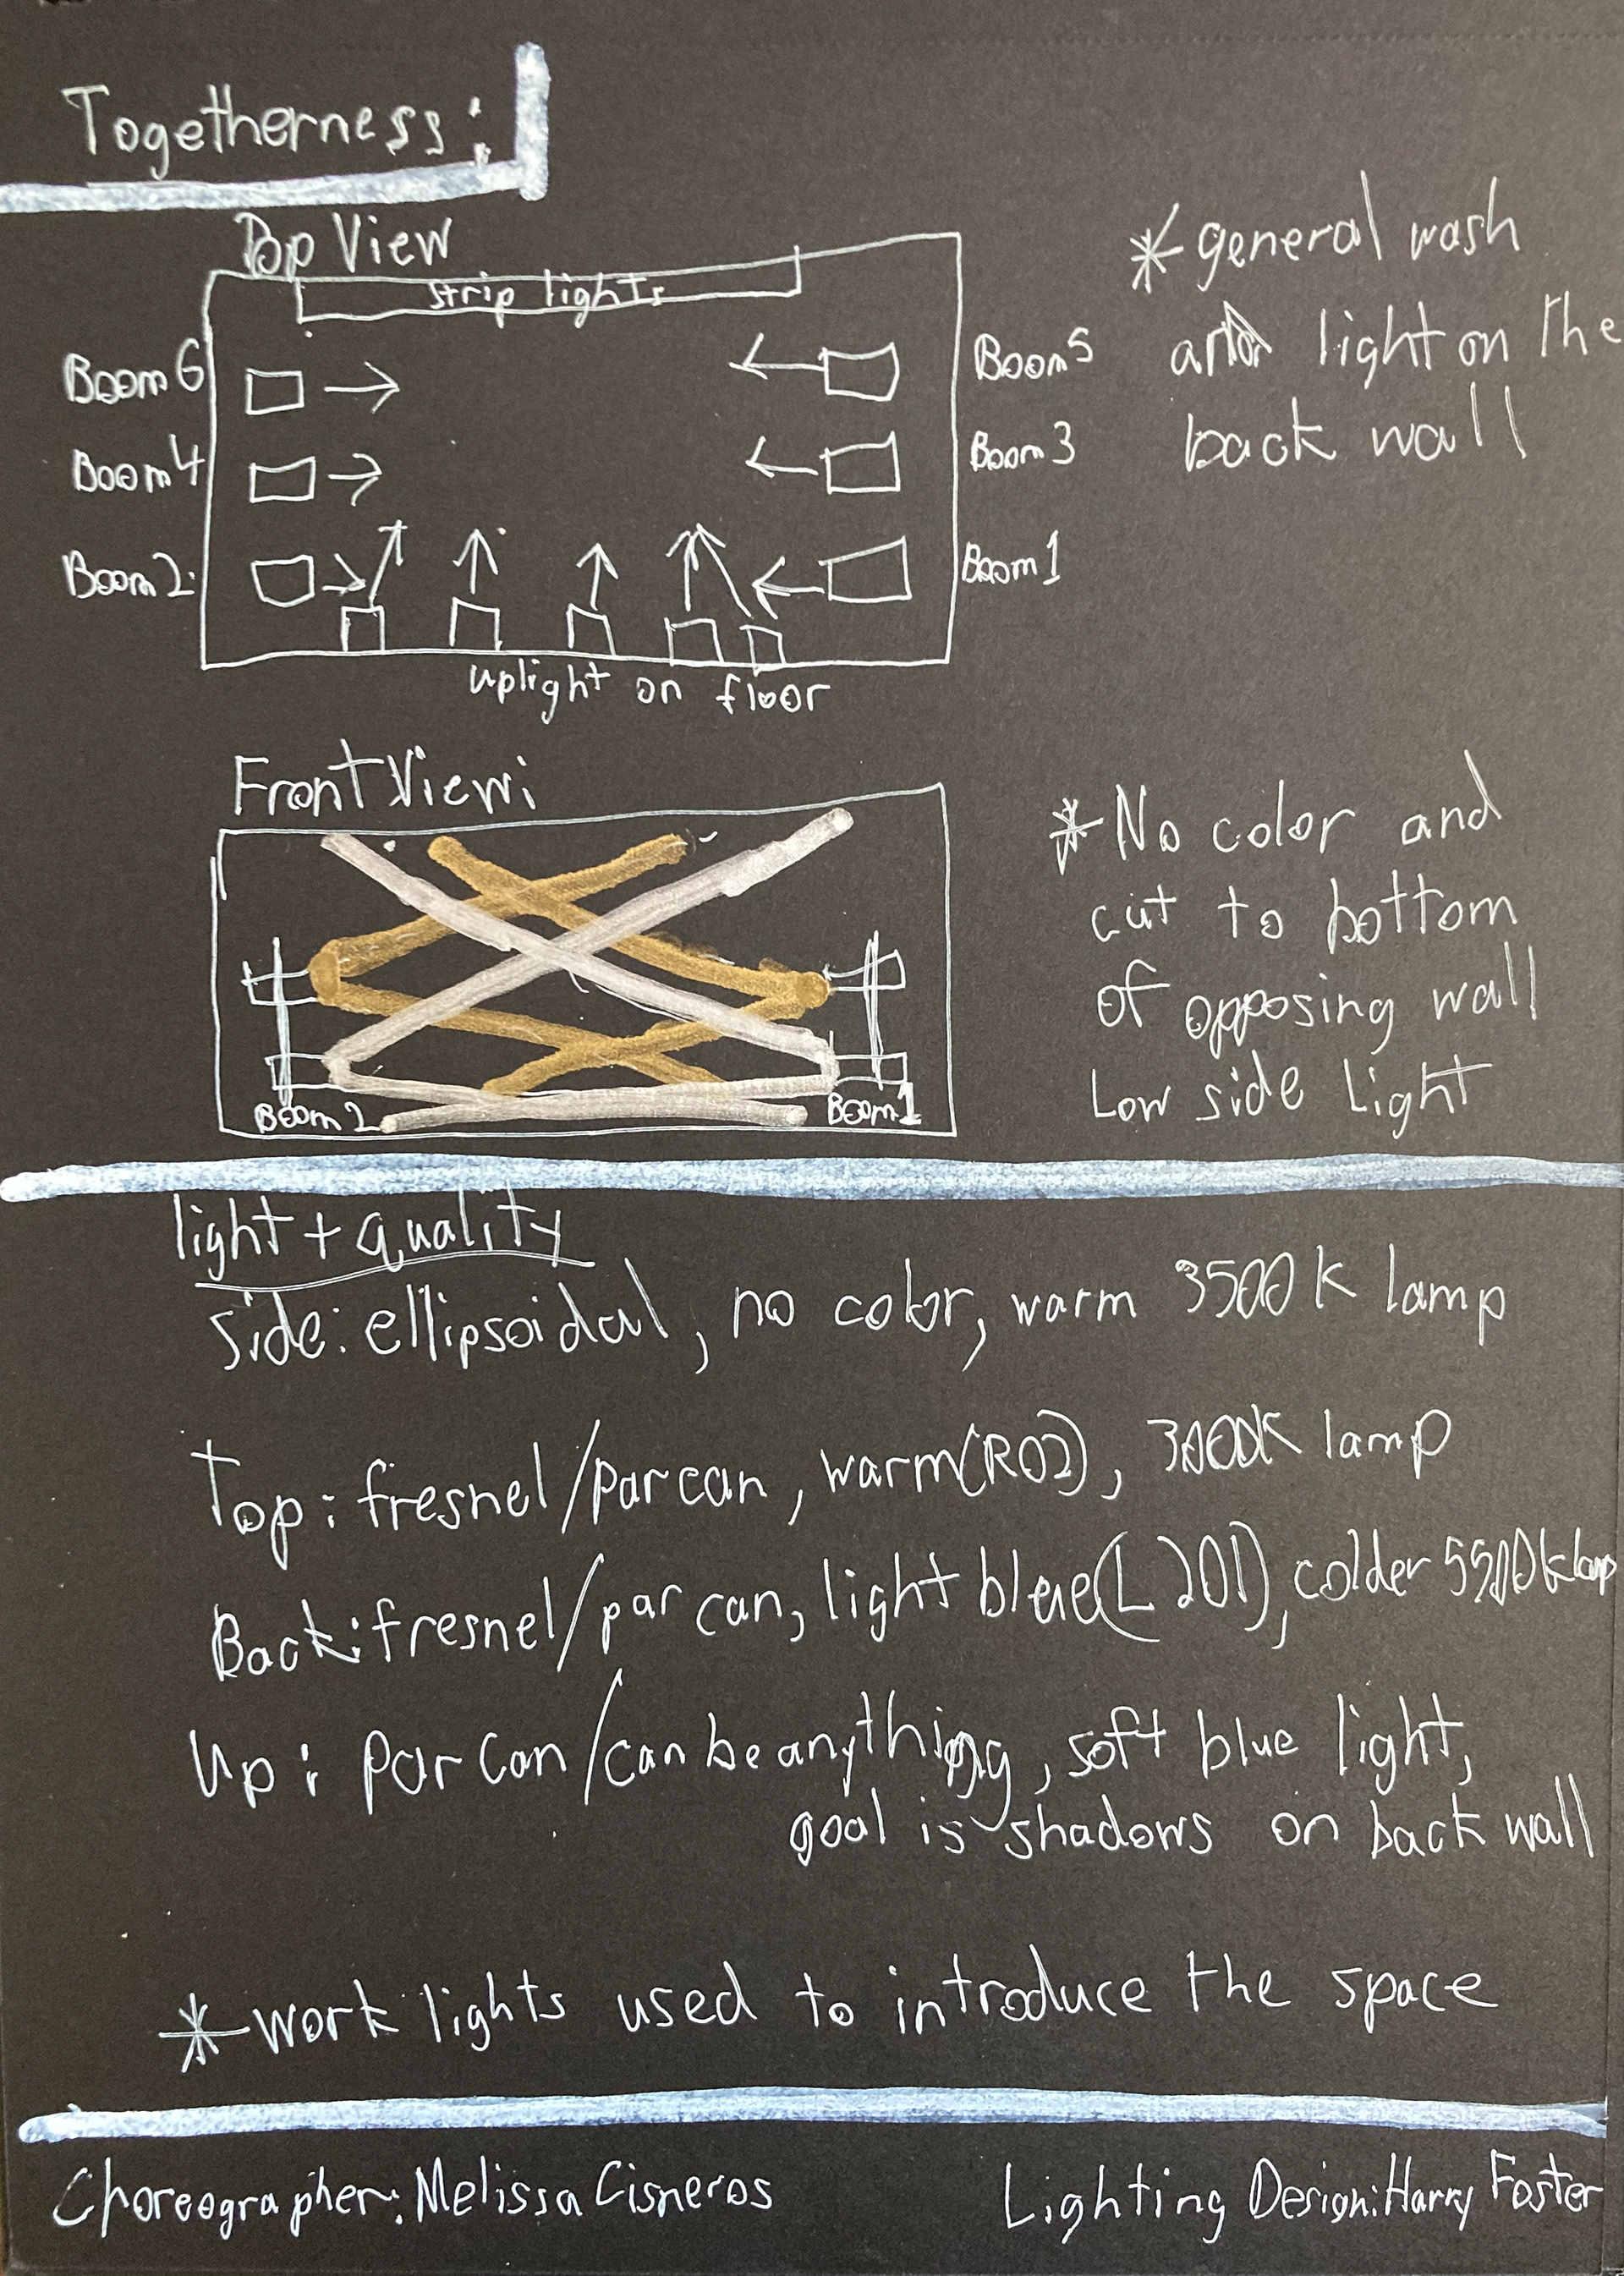 Togetherness:
Top View
strip lights
Boom 6
Boom 5
Boom 4
Boom 3
Boom 2
Boom 1
uplight on floor
* general wash
and light on the
back wall
Front View:
Boom 2
Boom 1
* No color and
cut to bottom
of opposing wall
Low side Light
light + quality
side: ellipsoidal, no color, warm 3500K lamp
Top: fresnel/par can, warm (R02), lamp
Back: fresnel/par can, light blue (L 201), colder lamp
Up: Par Can/can be anything, soft blue light,
goal is shadows on back wall
* work lights used to introduce the space
Choreographer: Melissa Cisneros
Lighting Design: Harry Foster